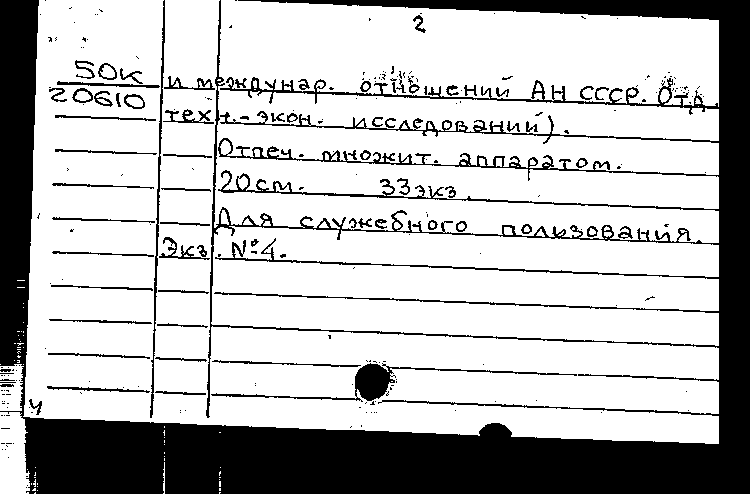 2
50К
20610
и междунар. отношений АН СССР. Отд.
техн.-экон. исследований).
Отпеч. множит. аппаратом.
20см. 33экз.
Для служебного пользования.
Экз. №4.